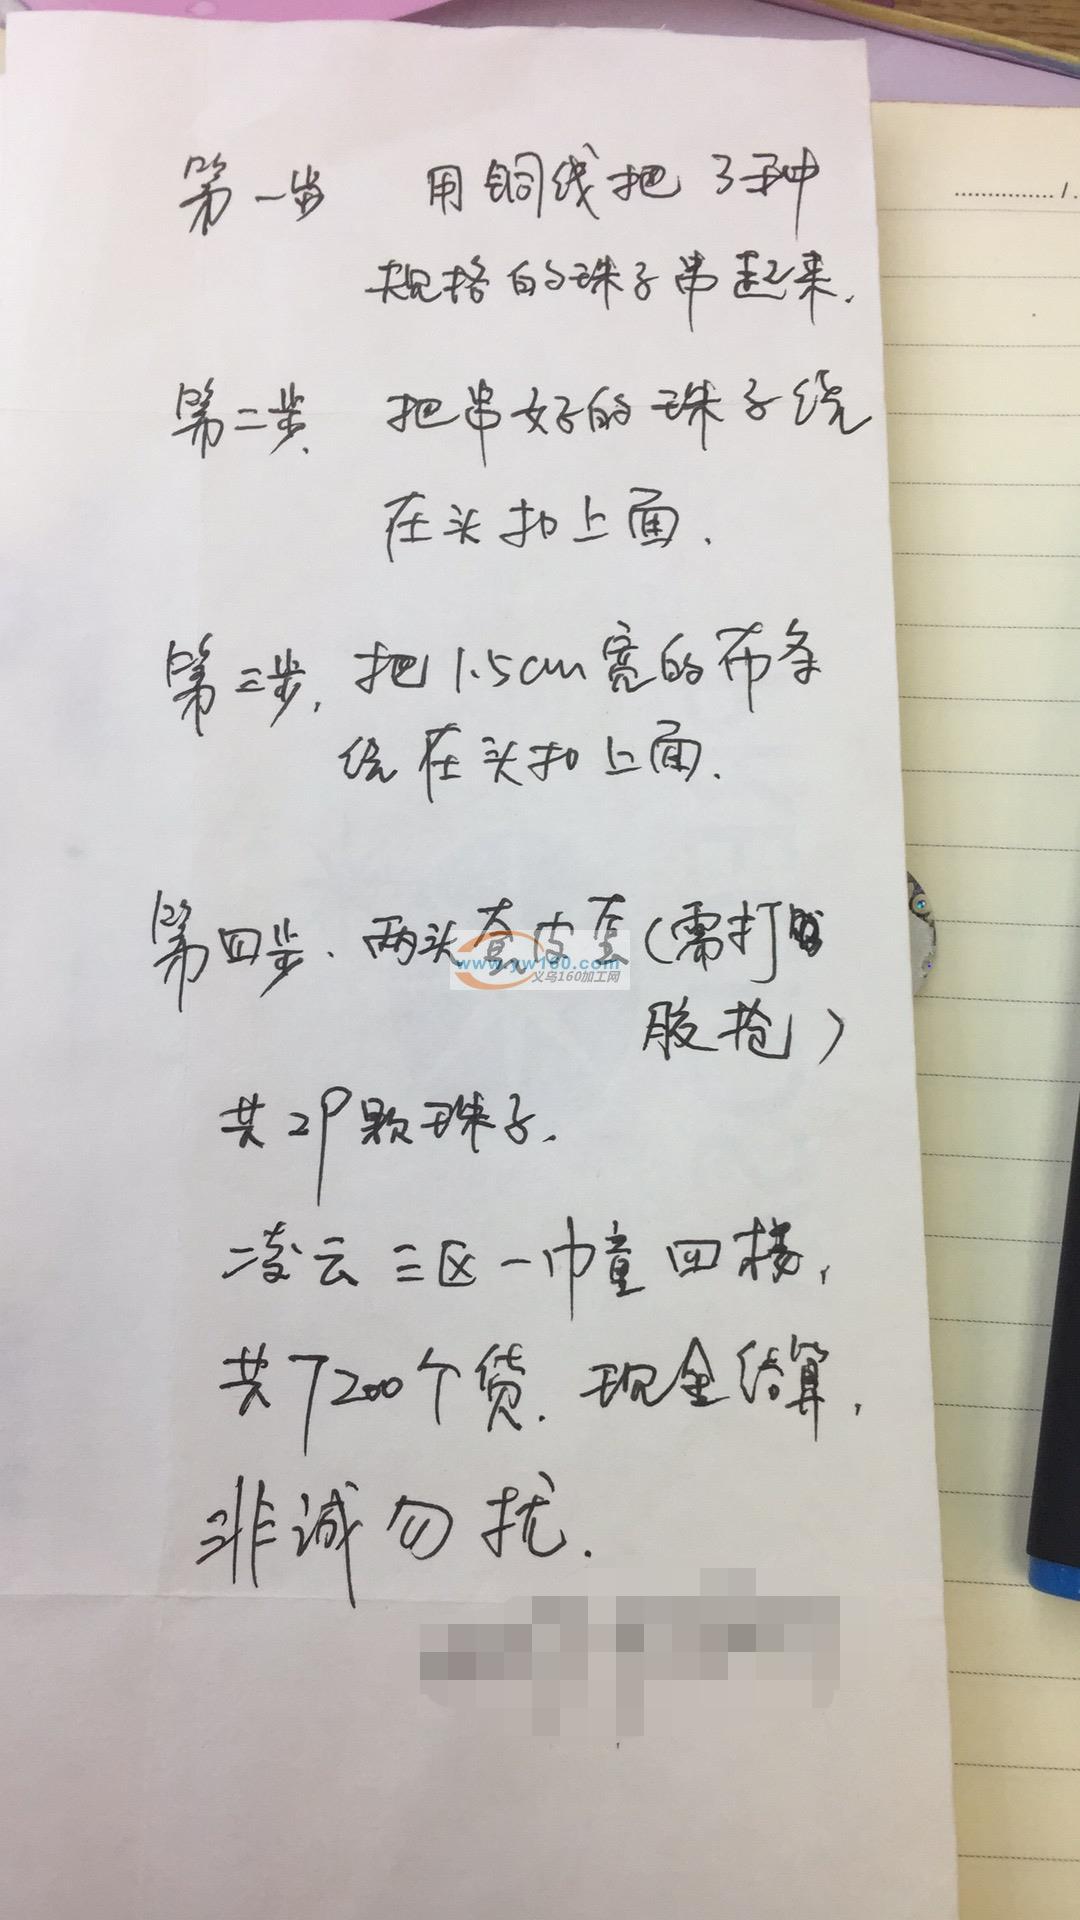 第一步 用铜线把3种
规格的珠子串起来.
第二步. 把串好的珠子绕
在头扣上面.
第三步, 把1.5cm宽的布条
绕在头扣上面.
第四步. 两头套皮套(需打
胶枪)
www.yw160.com
义乌160加工网
共29颗珠子.
凌云三区一巾童四楼,
共7200个货. 现金结算,
非诚勿扰.